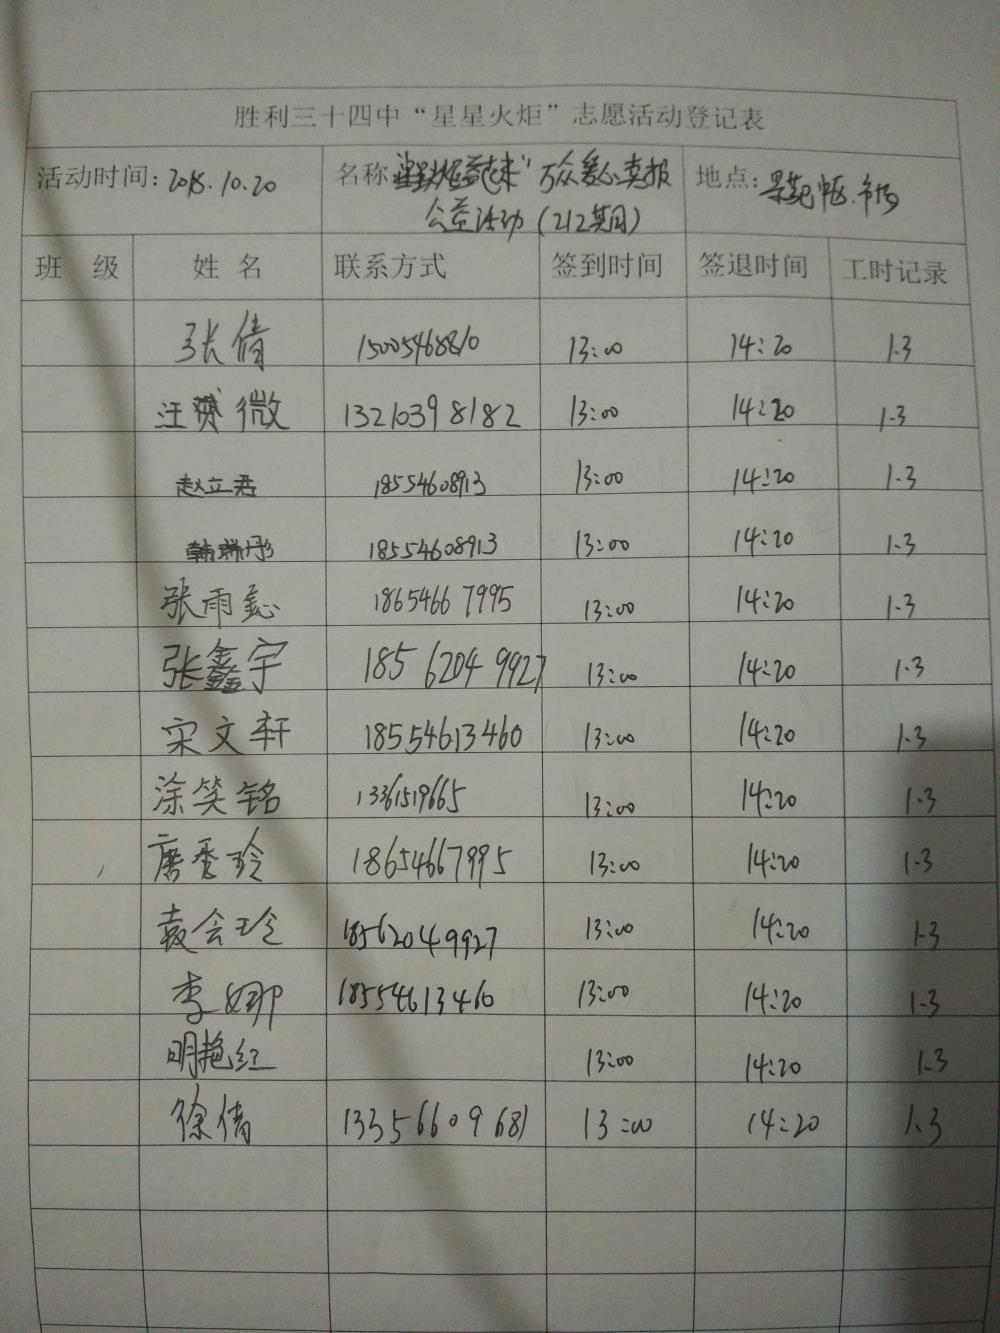 胜利三十四中“星星火炬”志愿活动登记表
活动时间:2018.10.20 名称 万众爱心卖报 地点: 市场
公益活动(212期)
班 级 姓 名 联系方式 签到时间 签退时间 工时记录
张倩 15005468810 13:00 14:20 1.3
汪 微 13210398182 13:00 14:20 1.3
赵立君 18554608913 13:00 14:20 1.3
韩瑞彤 18554608913 13:00 14:20 1.3
张雨 18654667995 13:00 14:20 1.3
张鑫宇 18562049927 13:00 14:20 1.3
宋文轩 18554613460 13:00 14:20 1.3
涂笑铭 13361519665 13:00 14:20 1.3
唐秀玲 18654667995 13:00 14:20 1.3
袁会玲 18562049927 13:00 14:20 1.3
李娜 18554613460 13:00 14:20 1.3
明艳红 13:00 14:20 1.3
徐倩 13356609681 13:00 14:20 1.3